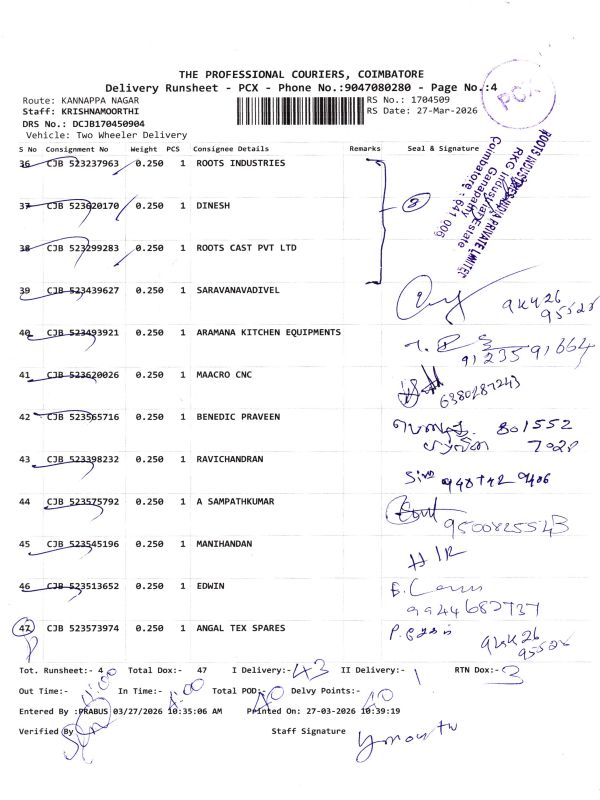 THE PROFESSIONAL COURIERS, COIMBATORE
Delivery Runsheet - PCX - Phone No.:9047080280 - Page No.:4
PCX
Route: KANNAPPA NAGAR RS No.: 1704509
Staff: KRISHNAMOORTHI RS Date: 27-Mar-2026
DRS No.: DCJB170450904
Vehicle: Two Wheeler Delivery
S No Consignment No Weight PCS Consignee Details Remarks Seal & Signature
36 CJB 523237963 0.250 1 ROOTS INDUSTRIES
ROOTS INDUSTRIES INDIA PRIVATE LIMITED
RKG Industrial Estate
Ganapathy
Coimbatore : 641 006
37 CJB 523620170 0.250 1 DINESH
3
38 CJB 523299283 0.250 1 ROOTS CAST PVT LTD
39 CJB 523439627 0.250 1 SARAVANAVADIVEL
95525
40 CJB 523493921 0.250 1 ARAMANA KITCHEN EQUIPMENTS
9123591664
41 CJB 523620026 0.250 1 MAACRO CNC
6380287243
42 CJB 523565716 0.250 1 BENEDIC PRAVEEN
801552
7028
43 CJB 523398232 0.250 1 RAVICHANDRAN
44 CJB 523575792 0.250 1 A SAMPATHKUMAR
9500825543
45 CJB 523545196 0.250 1 MANIHANDAN
H/R
46 CJB 523513652 0.250 1 EDWIN
9944682737
47 CJB 523573974 0.250 1 ANGAL TEX SPARES
95525
Tot. Runsheet:- 4 Total Dox:- 47 I Delivery:- 43 II Delivery:- 1 RTN Dox:- 3
Out Time:- 11:00 In Time:- 4:00 Total POD:- 40 Delvy Points:- 40
Entered By :PRABUS 03/27/2026 10:35:06 AM Printed On: 27-03-2026 10:39:19
Verified By Staff Signature